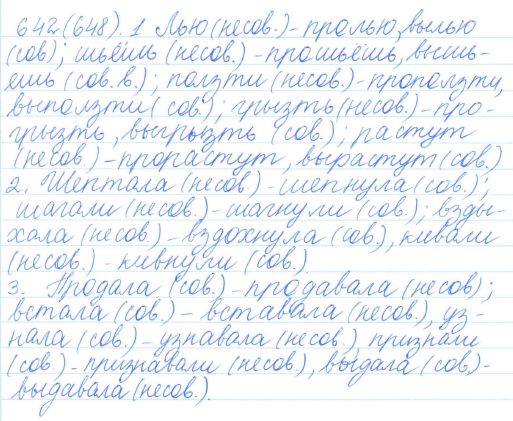 642(648). 1 Лью (несов.) - пролью, вылью
(сов); шьёшь (несов.) - прошьёшь, вышь-
ешь (сов. в.); ползти (несов.) - проползти,
выползти (сов.); грызть (несов.) - про-
грызть, выгрызть (сов.); растут
(несов.) - прорастут, вырастут (сов.)
2. Шептала (несов.) - шепнула (сов.);
шагали (несов.) - шагнули (сов.); взды-
хала (несов.) - вздохнула (сов.), кивали
(несов.) - кивнули (сов.)
3. Продала (сов.) - продавала (несов);
встала (сов.) - вставала (несов.), уз-
нала (сов.) - узнавала (несов.), признали
(сов.) - признавали (несов.), выдала (сов.) -
выдавала (несов.).